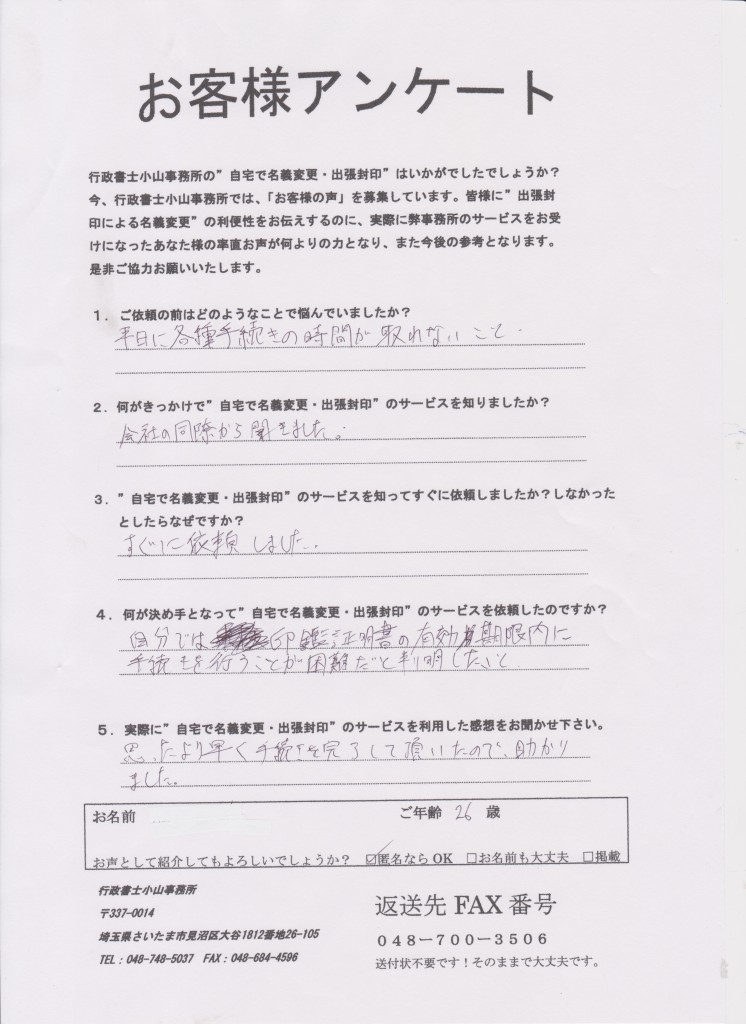 お客様アンケート
行政書士小山事務所の”自宅で名義変更・出張封印”はいかがでしたでしょうか？
今、行政書士小山事務所では、「お客様の声」を募集しています。皆様に”出張封
印による名義変更”の利便性をお伝えするのに、実際に弊事務所のサービスをお受
けになったあなた様の率直お声が何よりの力となり、また今後の参考となります。
是非ご協力お願いいたします。
１．ご依頼の前はどのようなことで悩んでいましたか？
平日に各種手続きの時間が取れないこと.
２．何がきっかけで”自宅で名義変更・出張封印”のサービスを知りましたか？
会社の同僚から聞きました。
３．”自宅で名義変更・出張封印”のサービスを知ってすぐに依頼しましたか？しなかった
としたらなぜですか？
すぐに依頼しました.
４．何が決め手となって”自宅で名義変更・出張封印”のサービスを依頼したのですか？
自分では印鑑証明書の有効期限内に
手続きを行うことが困難だと判明したこと
５．実際に”自宅で名義変更・出張封印”のサービスを利用した感想をお聞かせ下さい。
思ったより早く手続きを完了して頂いたので、助かり
ました。
お名前 ご年齢 26 歳
お声として紹介してもよろしいでしょうか？ ☑匿名なら OK □お名前も大丈夫 □掲載
行政書士小山事務所
〒337-0014
埼玉県さいたま市見沼区大谷1812番地26-105
TEL：048-748-5037 FAX：048-684-4596
返送先 FAX 番号
０４８－７００－３５０６
送付状不要です！そのままで大丈夫です。